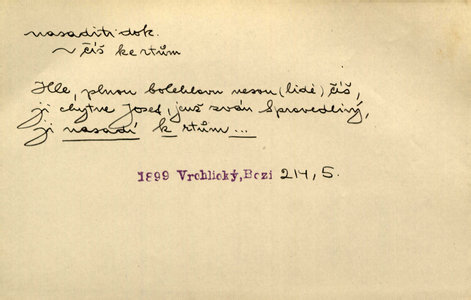 nasaditi dok.
~ číš ke rtům
Hle, plnou bolehlavu nesou (lidé) číš,
ji chytne Josef, jenž zván Spravedlivý,
ji nasadí k rtům ...
1899 Vrchlický, Bozi 214, 5.